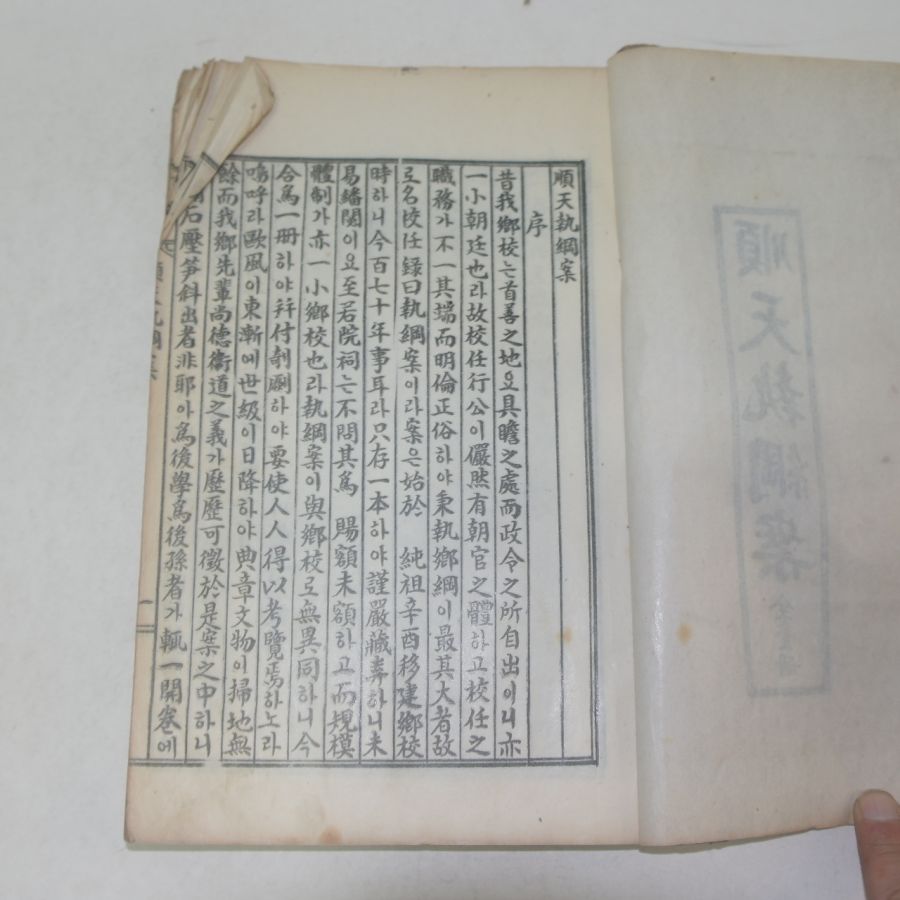 順天執綱案
序
昔我鄕校는首善之地요具瞻之處而政令之所自出이니亦
一小朝廷也라故校任行公이儼然有朝官之體하고校任之
職務가不一其端而明倫正俗하야秉執鄕綱이最其大者故
로名校任錄曰執綱案이라案은始於 純祖辛酉移建鄕校
時하니今百七十年事耳라只存一本하야謹嚴藏弆하니未
易繙閱이요至若院祠는不問其爲 賜額未額하고而規模
體制가亦一小鄕校也라執綱案이與鄕校로無異同하니今
合爲一冊하야幷付剞劂하야要使人人得以考覽焉하노라
嗚呼라歐風이東漸에世級이日降하야典章文物이掃地無
餘而我鄕先輩尙德衛道之義가歷歷可徵於是案之中하니
石壓笋斜出者非耶아爲後學爲後孫者가輒一開卷에
順天執綱案
一
順天執綱案